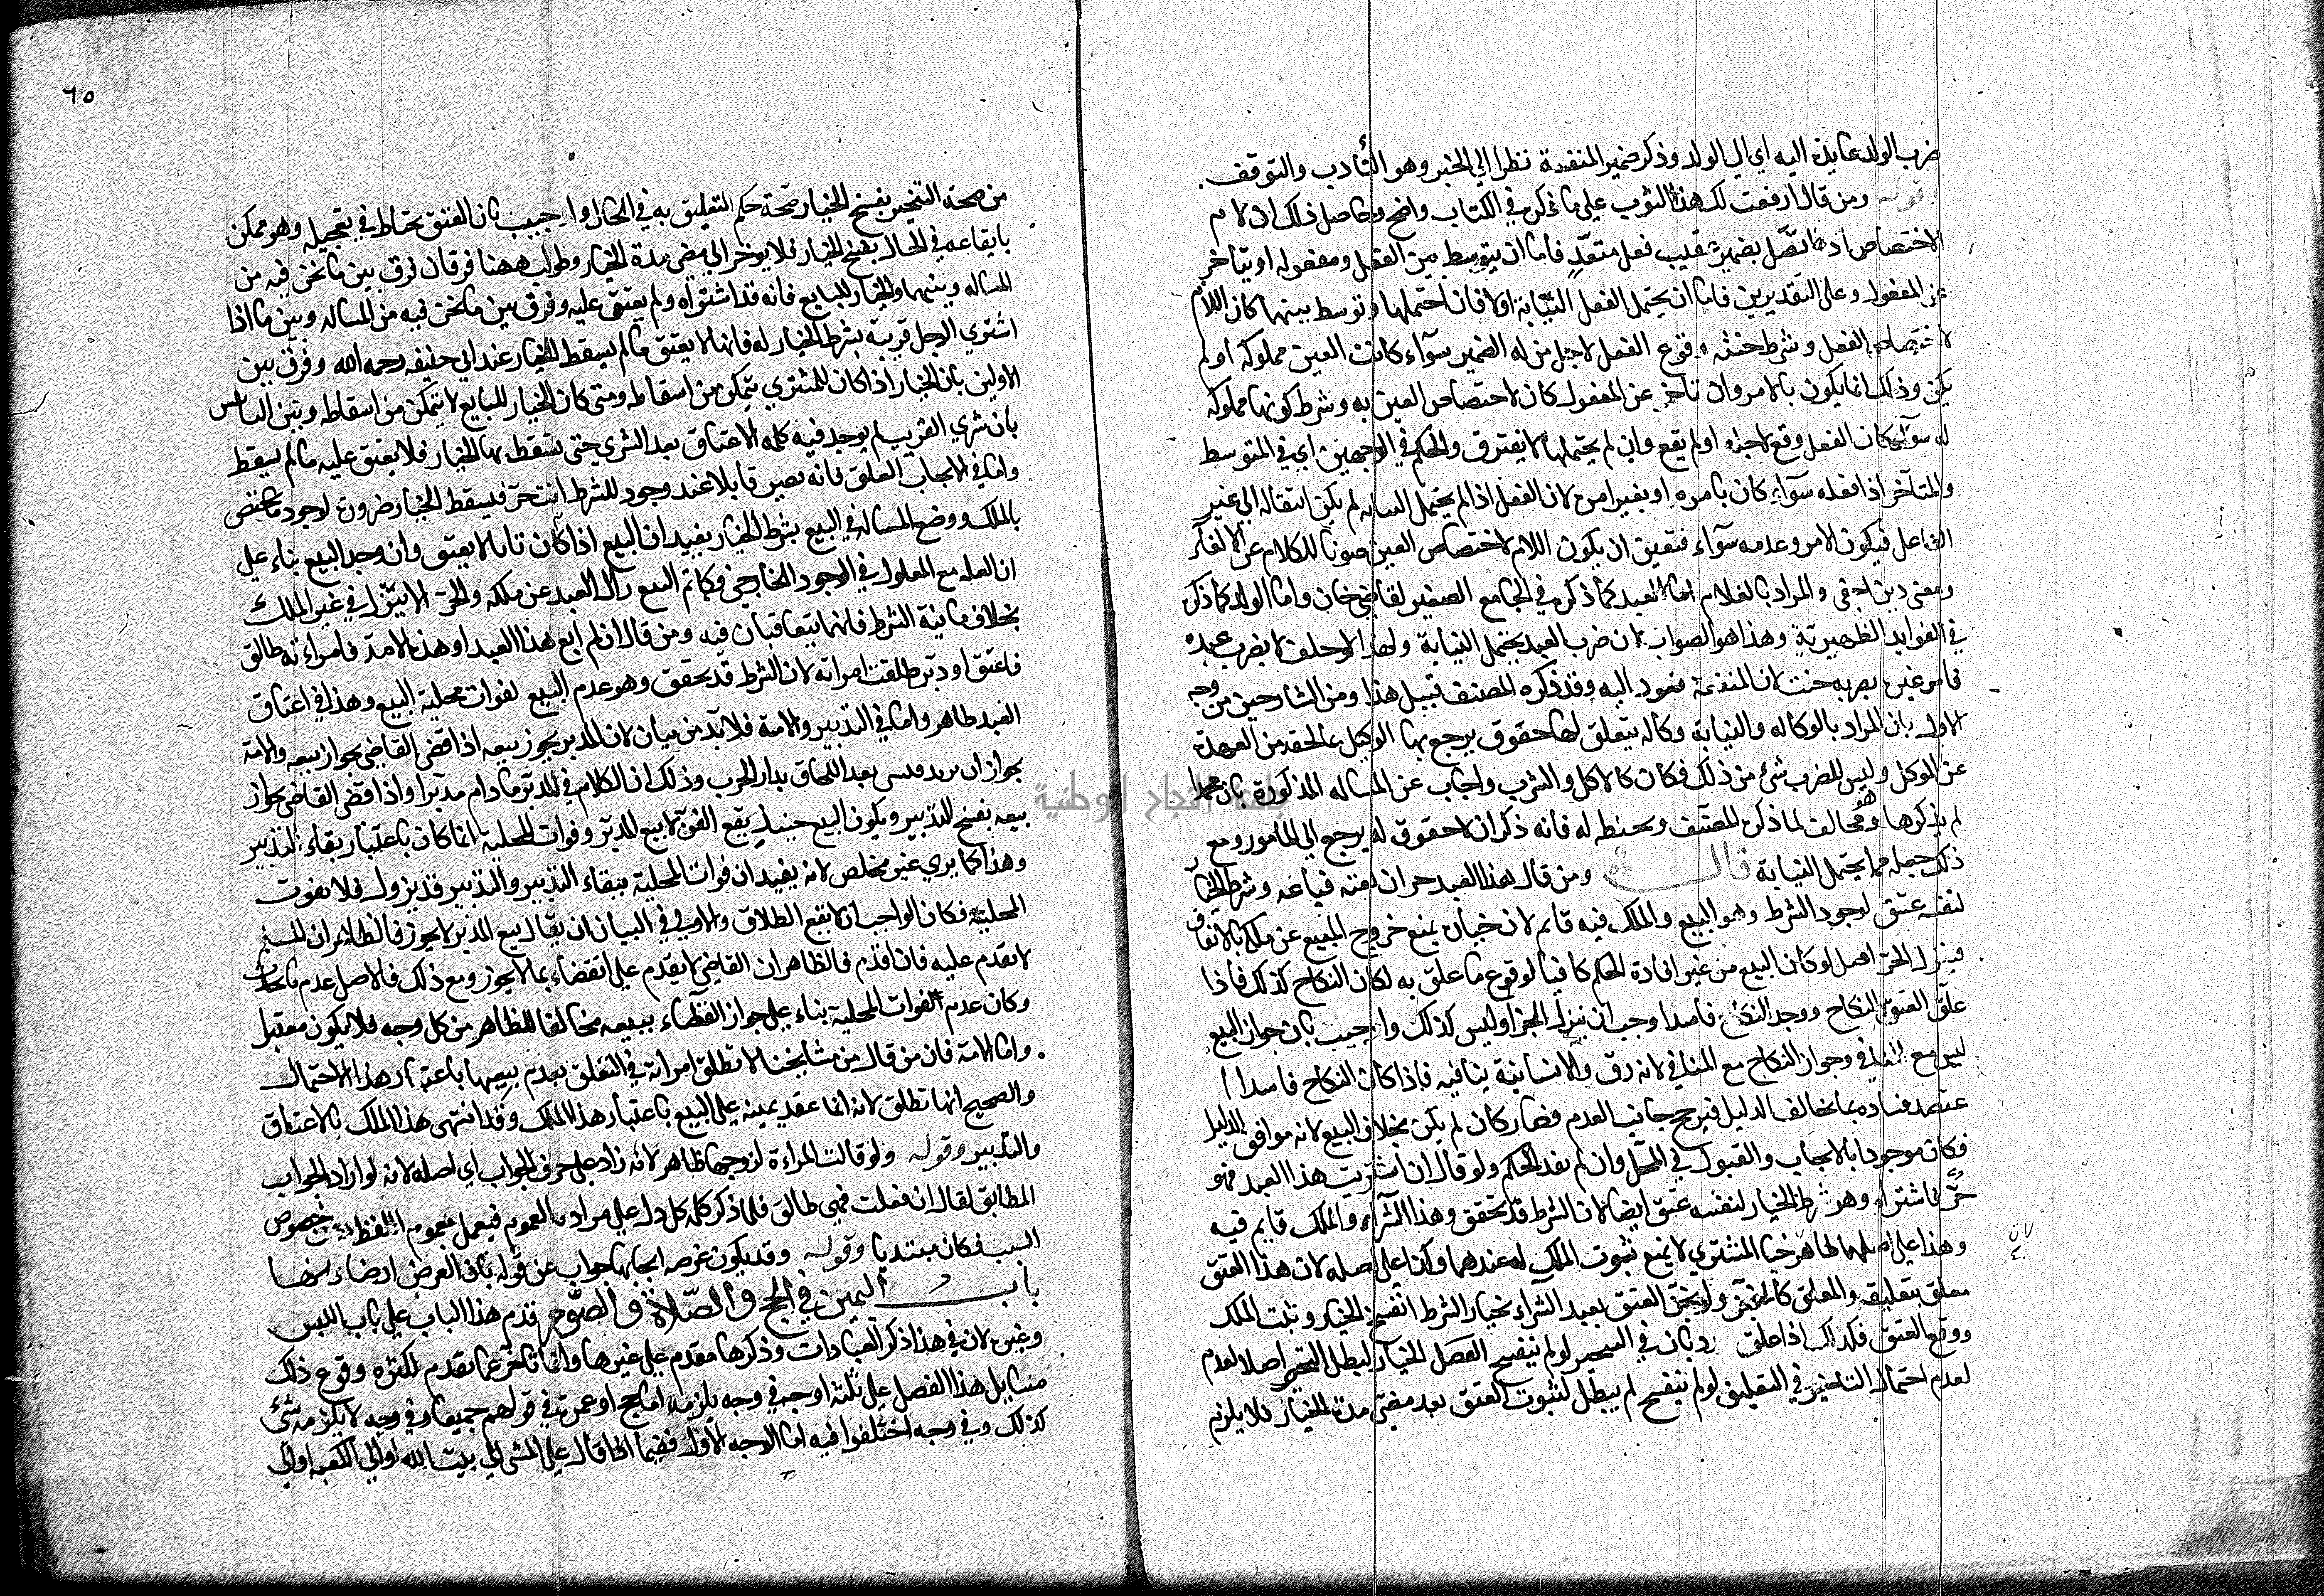 ضرب الولد عايدة اليه اي الي الولد وذكر ضمير المنفعة نظرا الي الخبر وهو التأدب والتوقف.
وقوله ومن قال ان بعت لك هذا الثوب علي ما ذكره في الكتاب واضح وحاصل ذلك ان لام
الاختصاص اذا اتصل بضمير عقيب فعل متعدٍ فاما ان يتوسط بين الفعل ومفعوله او يتأخر
عن المفعول وعلى التقديرين فاما ان يحتمل الفعل النيابة اولا فان احتملها وتوسط بينهما كان اللام
لاختصاص الفعل وشرط حنثه وقوع الفعل لاجل من له الضمير سوآء كانت العين مملوكة او لم
يكن وذلك انما يكون بالامر وان تاخر عن المفعول كان لاختصاص العين به وشرط كونها مملوكة
له سوآء كان الفعل وقع لاجله او لم يقع وان لم يحتملها لا يفترق والحكم في الوجهين اي في المتوسط
والمتأخر اذا فعله سوآء كان بامره او بغير امره لان الفعل اذا لم يحتمل النيابه لم يكن انتقاله الي غير
الفاعل فيكون الامر وعدمه سوآء فتعين ان يكون اللام لاختصاص العين صونا للكلام عن الالغاء
ومعنى دين احقي والمراد بالغلام اما العبد كما ذكره في الجامع الصغير لقاضي خان واما الولد كما ذكره
في الفوايد الظهيرية وهذا هو الصواب لان ضرب العبد يحتمل النيابة ولهذا لو حلف لا يضرب عبده
فامر غيره بضربه حنث لان المنفعة تعود اليه وقد ذكره المصنف قبيل هذا ومن الشارحين من وجه
الاول بان المراد بالوكاله والنيابة وكاله يتعلق لها حقوق يرجع بها الوكيل بما لحقه من العهدة
عن الموكل وليس للضرب شئ من ذلك فكان كالاكل والشرب واجاب عن المساله المذكورة بان محمدا
لم يذكرها وهو مخالف لما ذكره المصنف فانه ذكر ان لا حقوق له يرجع الي المامور ومع
ذلك جعله مما يحتمل النيابة قال ومن قال هذا العبد حر ان بعته فباعه وشرط الخيار
لنفسه عتق لوجود الشرط وهو البيع والملك فيه قايم لان خياره يمنع خروج المبيع عن ملكه بالاتفاق
فينزل الجزاء لو كان البيع من غير افادة الحكم كافيا لوقوع ما علق به لكان النكاح كذلك فاذا
علق العتق بالنكاح ووجد النكاح فاسدا وجب ان ينزل الجزا وليس كذلك واجيب بان جواز البيع
ليس مع المنافي وجواز النكاح مع المنافي لانه رق والانسانية ينافيه فاذا كان النكاح فاسدا
اعتضد فساده بما يخالف الدليل فيرجح جانب العدم فصار كان لم يكن بخلاف البيع لانه موافق للدليل
فكان موجودا بالايجاب والقبول في المحل وان لم يفد الحكم ولو قال ان اشتريت هذا العبد فهو
حر فاشتراه وهو شرط الخيار لنفسه عتق ايضا لان الشرط قد تحقق وهذا الشرآء والملك قايم فيه
وهذا على اصلهما ظاهر خيار المشتري لا يمنع ثبوت الملك له عندهما وكذا على اصله لان هذا العتق
معلق بتعليقه والمعلق كالمنجز ولو نجز العتق بعد الشرآء بخيار الشرط انفسخ الخيار وثبت الملك
ووقع العتق فكذلك اذا علق رد بان في التنجيز لو لم ينفسخ الخيار ليبطل التنجيز اصلا لعدم
لعدم احتمال التاخير في التعليق لو لم ينفسخ لم يبطل لثبوت العتق بعد مضي مدة الخيار فلا يلزم
لان
٦٥
من صحة التنجيز بفسخ الخيار صحة حكم التعليق به في الحال واجيب بان العتق يحتاط في تعجيله وهو ممكن
بايقاعه في الحال بفسخ الخيار فلا يوخر الي مضي مدة الخيار وطولب ههنا فرقان فرق بين ما نحن فيه من
المساله وبينهما والخيار للبايع فانه قد اشتراه ولم يعتق عليه وفرق بين ما نحن فيه من المساله وبين ما اذا
اشتري الرجل قريبه بشرط الخيار له فانه لا يعتق ما لم يسقط الخيار عند ابي حنيفه رحمه الله وفرق بين
الاولين بان الخيار اذا كان للمشتري يتمكن من اسقاطه ومتى كان الخيار للبايع لا يتمكن من اسقاطه وبين
بان شري القريب لم يوجد فيه كلمة الاعتاق بعد الشري حتى يسقط بها الخيار فلا يعتق عليه ما لم يسقط
واما في الايجاب المعلق فانه يصير قايلا عند وجود الشرط انت حر فيسقط الخيار ضرورة لوجود ما يختص
بالملك ووضع المساله في البيع بشرط الخيار يفيد ان البيع اذا كان تاما لا يعتق وان وجد البيع بناء علي
ان العله مع المعلول في الوجود الخارجي فكما تم البيع زال العبد عن ملكه والجزاء لا ينزل في غير الملك
بخلاف ما فيه الشرط فانهما يتعاقبان فيه ومن قال ان لم ابع هذا العبد او هذه الامة فامراءته طالق
فاعتق او دبر طلقت امراته لان الشرط قد تحقق وهو عدم البيع لفوات محلية البيع وهذا في اعتاق
العبد ظاهر واما في التدبير والامة فلا بد من بيان لان المدبر يجوز بيعه اذا قضى القاضي بجواز بيعه والامة
بجواز ان ترتد فتسبى بعد اللحاق بدار الحرب وذلك ان الكلام في المدبر ما دام مدبرا واذا قضى القاضي بجواز
بيعه يفسخ التدبير ويكون البيع حينئذ بيع القن لا بيع المدبر وفوات المحلية انما كان باعتبار بقاء التدبير
وهذا كما يري غير مخلص لانه يفيد ان فوات المحلية ببقاء التدبير والتدبير قد يزول فلا يفوت
المحلية فكان الواجب ان لا يقع الطلاق والاولي في البيان ان يقال بيع المدبر لا يجوز فالظاهر ان المسلم
لا يقدم عليه فان اقدم فالظاهر ان القاضي لا يقدم علي القضاء بما لا يجوز ومع ذلك فالاصل عدم ما يحدث
وكان عدم الفوات المحلية بناء علي جواز القضاء ببيعه مخالفا للظاهر من كل وجه فلا يكون معتبرا
. واما الامة فان من قال من مشايخنا لا تطلق امراته في التعلق بعدم بيعها باعتبار هذا الاحتمال
والصحيح انها تطلق لانه انما عقد يمينه علي البيع باعتبار هذا الملك وقد انتهى هذا الملك بالاعتاق
والتدبير وقوله ولو قالت المراءة لزوجها ظاهر لانه زاد على حرف الجواب اي اصله لانه لو اراد الجواب
المطابق لقال ان فعلت فهي طالق فلما ذكر كلمة كل دل علي مراده العموم فيعمل بعموم اللفظ خصوص
السبب فكان مبتديا وقوله وقد يكون غرضه ايحاشها جواب عن قوله بان الغرض ارضاءها
باب اليمين في الحج و الصلاة و الصوم قدم هذا الباب علي باب اللبس
وغيره لان في هذا ذكر العبادات وذكرها مقدم علي غيرها وانما تاخر عما تقدم لكثرة وقوع ذلك
مسايل هذا الفصل علي ثلثة اوجه في وجه يلزمه اما حج او عمرة في قولهم جميعا وفي وجه لا يلزمه شئ
كذلك وفي وجه اختلفوا فيه اما الوجه الاول فضيما اذا قال علي المشي الي بيت الله او الي الكعبه او الي